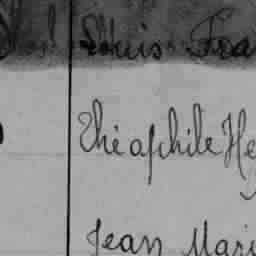 Louis Fra
Théaphile He
Jean Mari